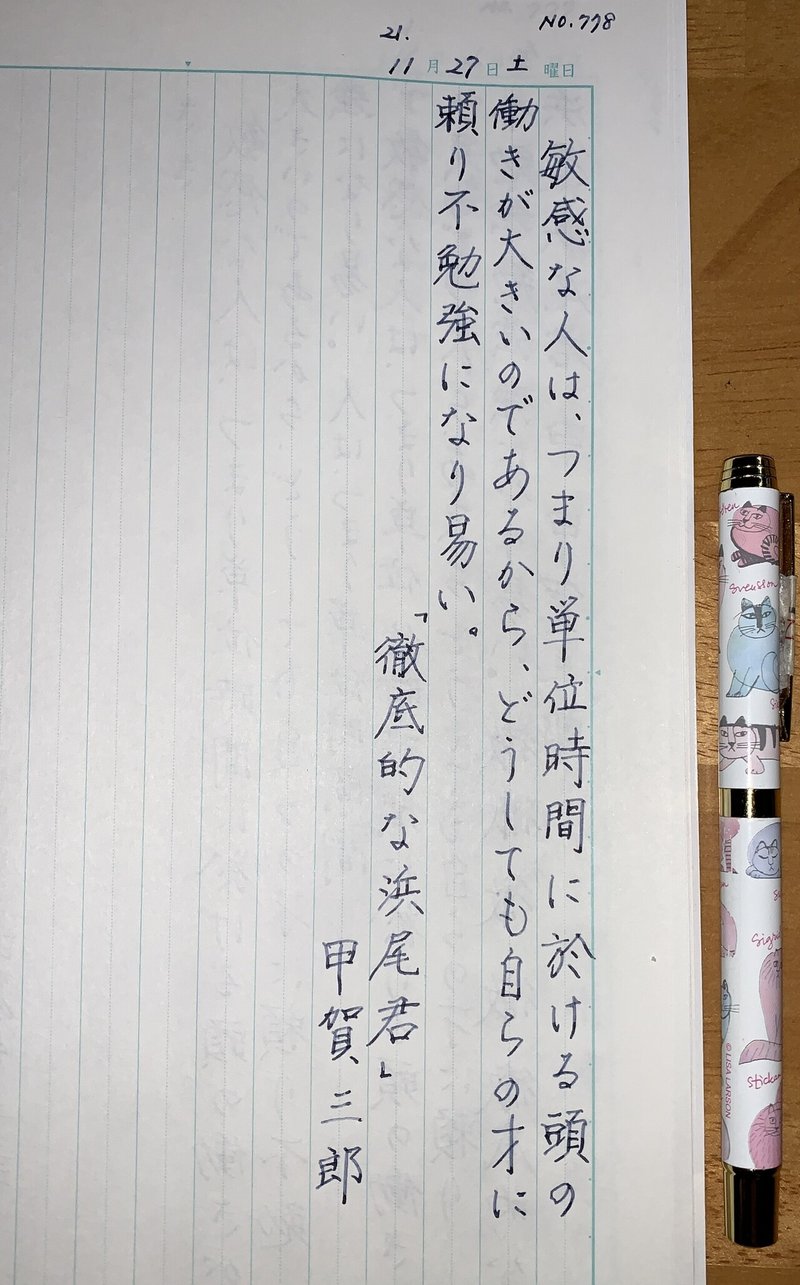 NO.778
21.
11月27日土曜日
敏感な人は、つまり単位時間に於ける頭の
働きが大きいのであるから、どうしても自らの才に
頼り不勉強になり易い。
「徹底的な浜尾君」
甲賀三郎
Svensson
© LISA LARSON